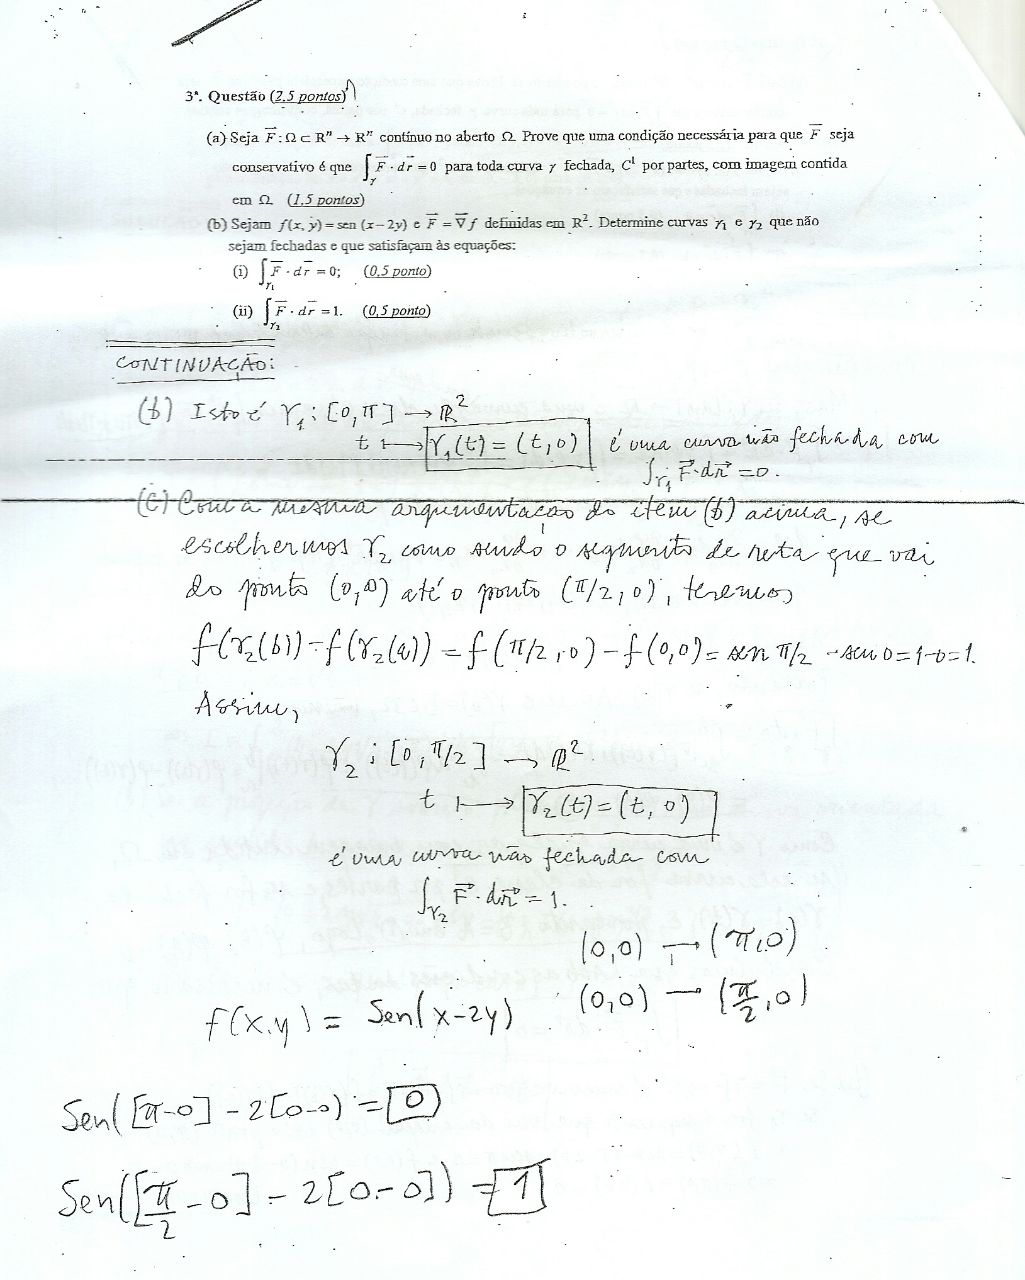 3ª. Questão (2,5 pontos)
(a) Seja F⃗ : Ω ⊂ Rⁿ → Rⁿ contínuo no aberto Ω. Prove que uma condição necessária para que F⃗ seja
conservativo é que ∫_γ F⃗ · dr⃗ = 0 para toda curva γ fechada, C¹ por partes, com imagem contida
em Ω. (1,5 pontos)
(b) Sejam f(x, y) = sen (x − 2y) e F⃗ = ∇⃗f definidas em R². Determine curvas γ₁ e γ₂ que não
sejam fechadas e que satisfaçam às equações:
(i) ∫_γ₁ F⃗ · dr⃗ = 0; (0,5 ponto)
(ii) ∫_γ₂ F⃗ · dr⃗ = 1. (0,5 ponto)
CONTINUAÇÃO:
(b) Isto é γ₁ : [0, π] → R²
t ↦ γ₁(t) = (t, 0) é uma curva não fechada com
∫_γ₁ F⃗ · dr⃗ = 0.
(c) Com a mesma argumentação do item (b) acima, se
escolhermos γ₂ como sendo o segmento de reta que vai
do ponto (0,0) até o ponto (π/2, 0), teremos
f(γ₂(b)) − f(γ₂(a)) = f(π/2, 0) − f(0,0) = sen π/2 − sen 0 = 1−0 = 1.
Assim,
γ₂ : [0, π/2] → R²
t ↦ γ₂(t) = (t, 0)
é uma curva não fechada com
∫_γ₂ F⃗ · dr⃗ = 1.
(0,0) → (π,0)
(0,0) — (π/2, 0)
f(x,y) = Sen(x−2y)
Sen([π−0] − 2[0−0) = 0
Sen([π/2 − 0] − 2[0−0]) = 1